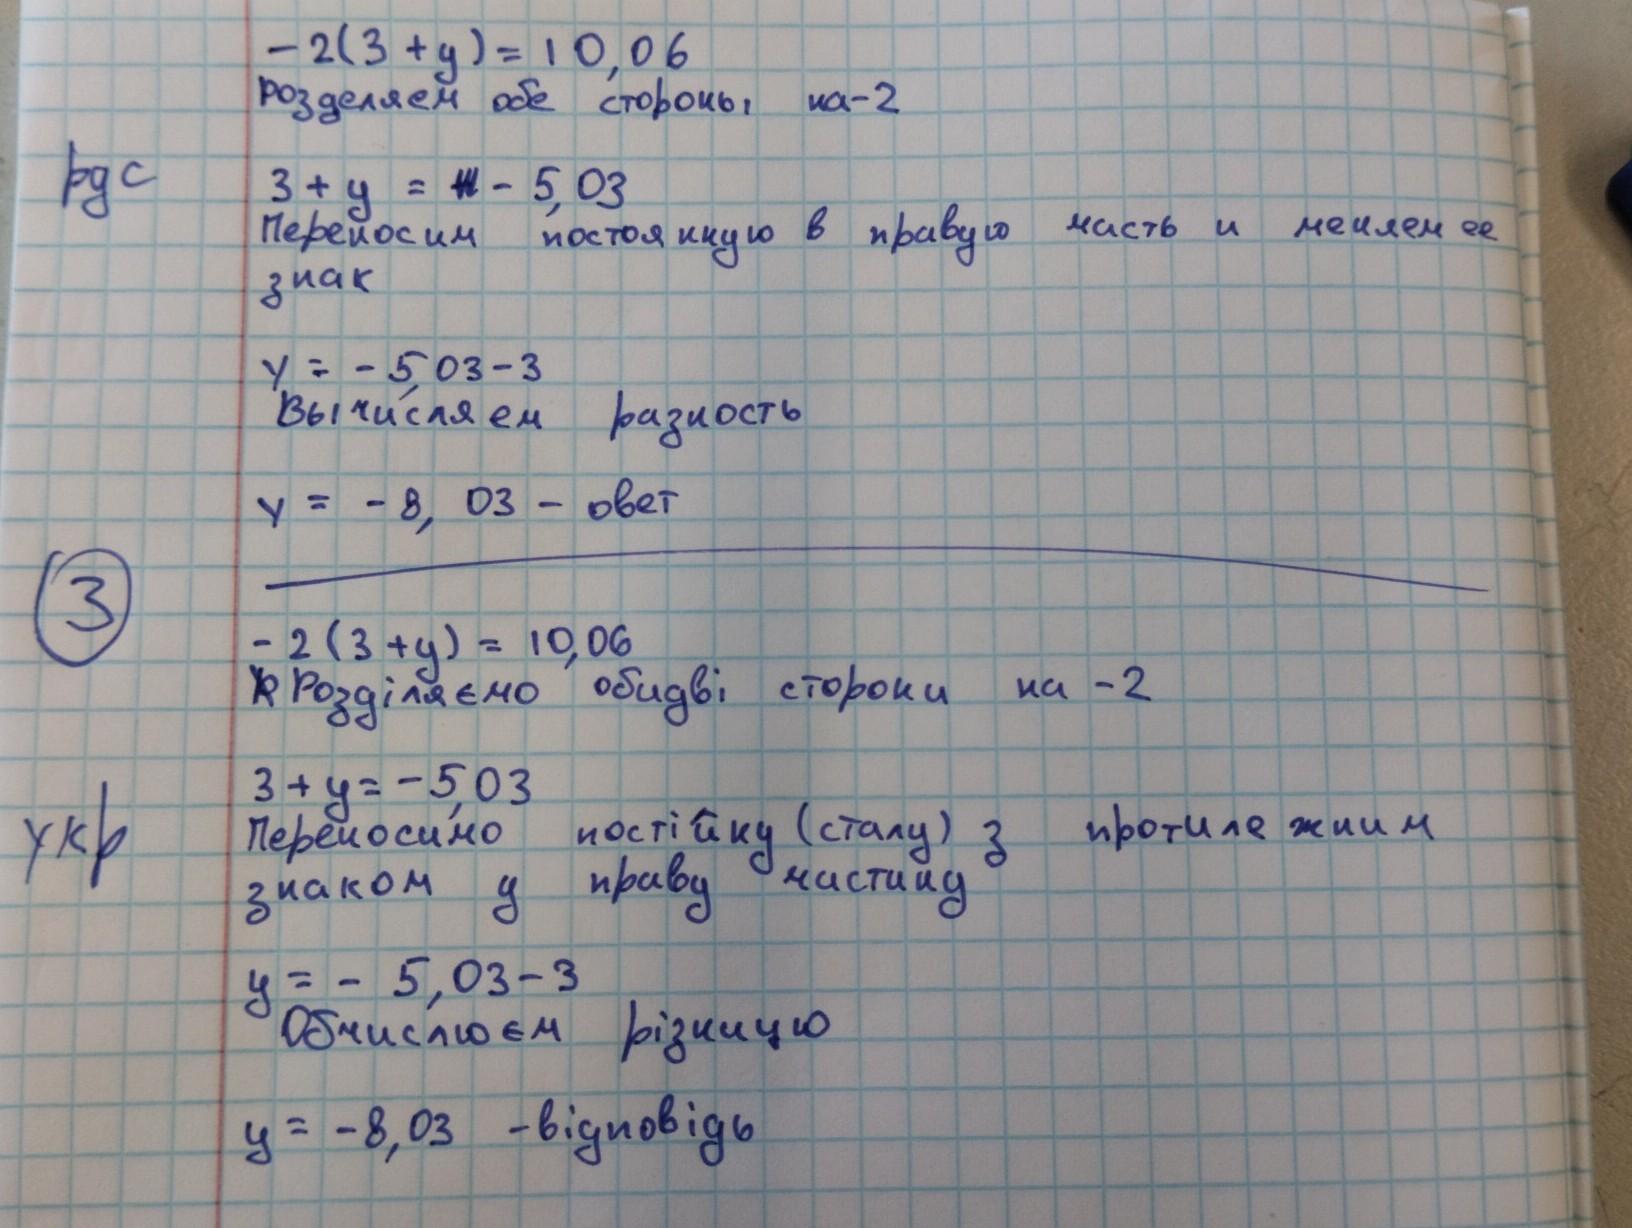 -2(3+y)=10,06
Розделяем обе стороны на-2
рдс
3+y = - 5,03
Переносим постоянную в правую часть и меняем ее
знак
y = -5,03-3
Вычисляем разность
y = -8,03 - овет
3
-2(3+y) = 10,06
Розділяємо обидві сторони на -2
3+y=-5,03
укр
Переносимо постійну (сталу) з протилежним
знаком у праву частину
y = - 5,03-3
Обчислюєм різницю
y = -8,03 -відповідь